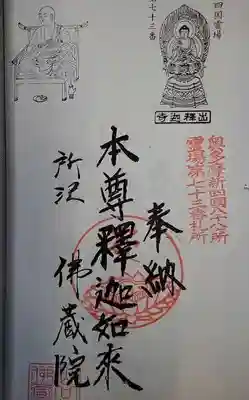 四国霊場
七十三番
出釋迦寺
奥多摩新四國八十八ヶ所
霊場第七十三番札所
奉納
本尊釋迦如來
所沢 佛蔵院